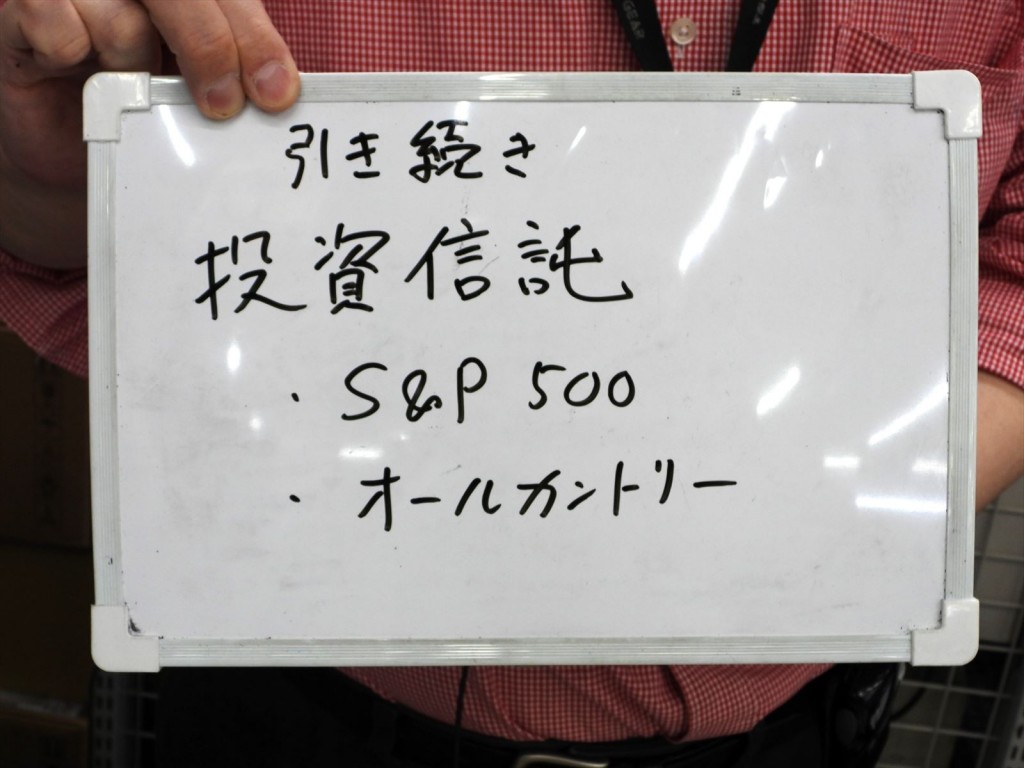 GEAR
引き続き
投資信託
・S&P 500
・オールカントリー